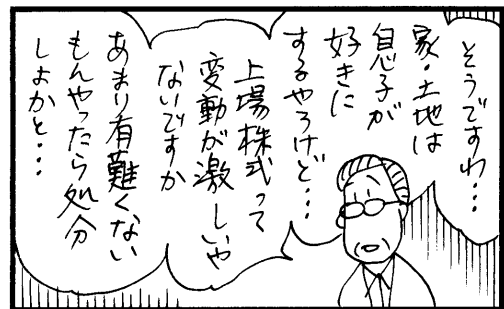 そうですわ・・・
家・土地は
息子が
好きに
するやろけど・・・
上場株式って
変動が激しいや
ないですか
あまり有難くない
もんやったら処分
しよかと・・・